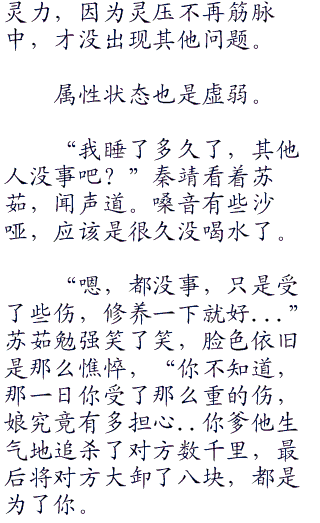 灵力，因为灵压不再筋脉
中，才没出现其他问题。
属性状态也是虚弱。
“我睡了多久了，其他
人没事吧？”秦靖看着苏
茹，闻声道。嗓音有些沙
哑，应该是很久没喝水了。
“嗯，都没事，只是受
了些伤，修养一下就好...”
苏茹勉强笑了笑，脸色依旧
是那么憔悴，“你不知道，
那一日你受了那么重的伤，
娘究竟有多担心..你爹他生
气地追杀了对方数千里，最
后将对方大卸了八块，都是
为了你。